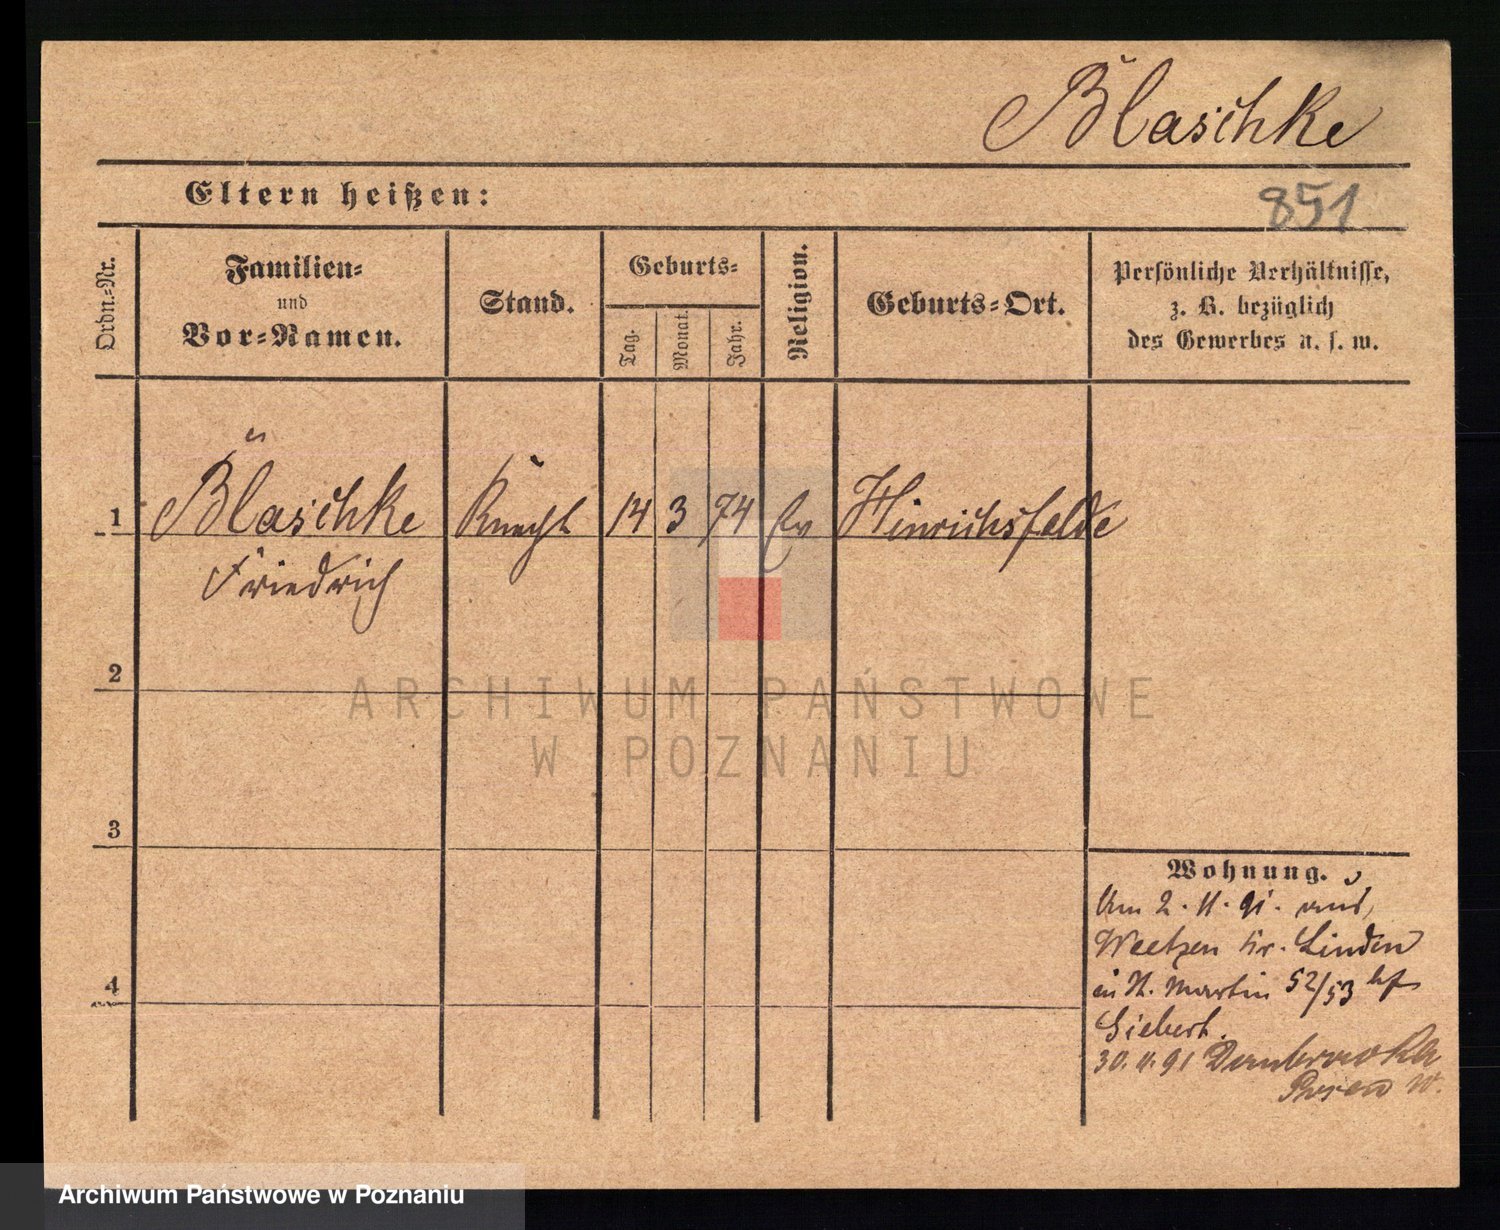 Blaschke
Eltern heißen:
851
Ordn.-Nr.
Familien-
und
Vor-Namen.
Stand.
Geburts-
Tag.
Monat.
Jahr.
Religion.
Geburts-Ort.
Persönliche Verhältnisse,
z. B. bezüglich
des Gewerbes u. s. w.
1
Blaschke
Friedrich
Knecht
14
3
74
Ev
Hinrichsfelde
2
3
4
Wohnung.
Am 2. 11. 91. aus
Weetzen Kr. Linden
in St. Martin 52/53 bei
Siebert.
30.11.91 Dombrowka
Posen W.
ARCHIWUM PAŃSTWOWE
W POZNANIU
Archiwum Państwowe w Poznaniu